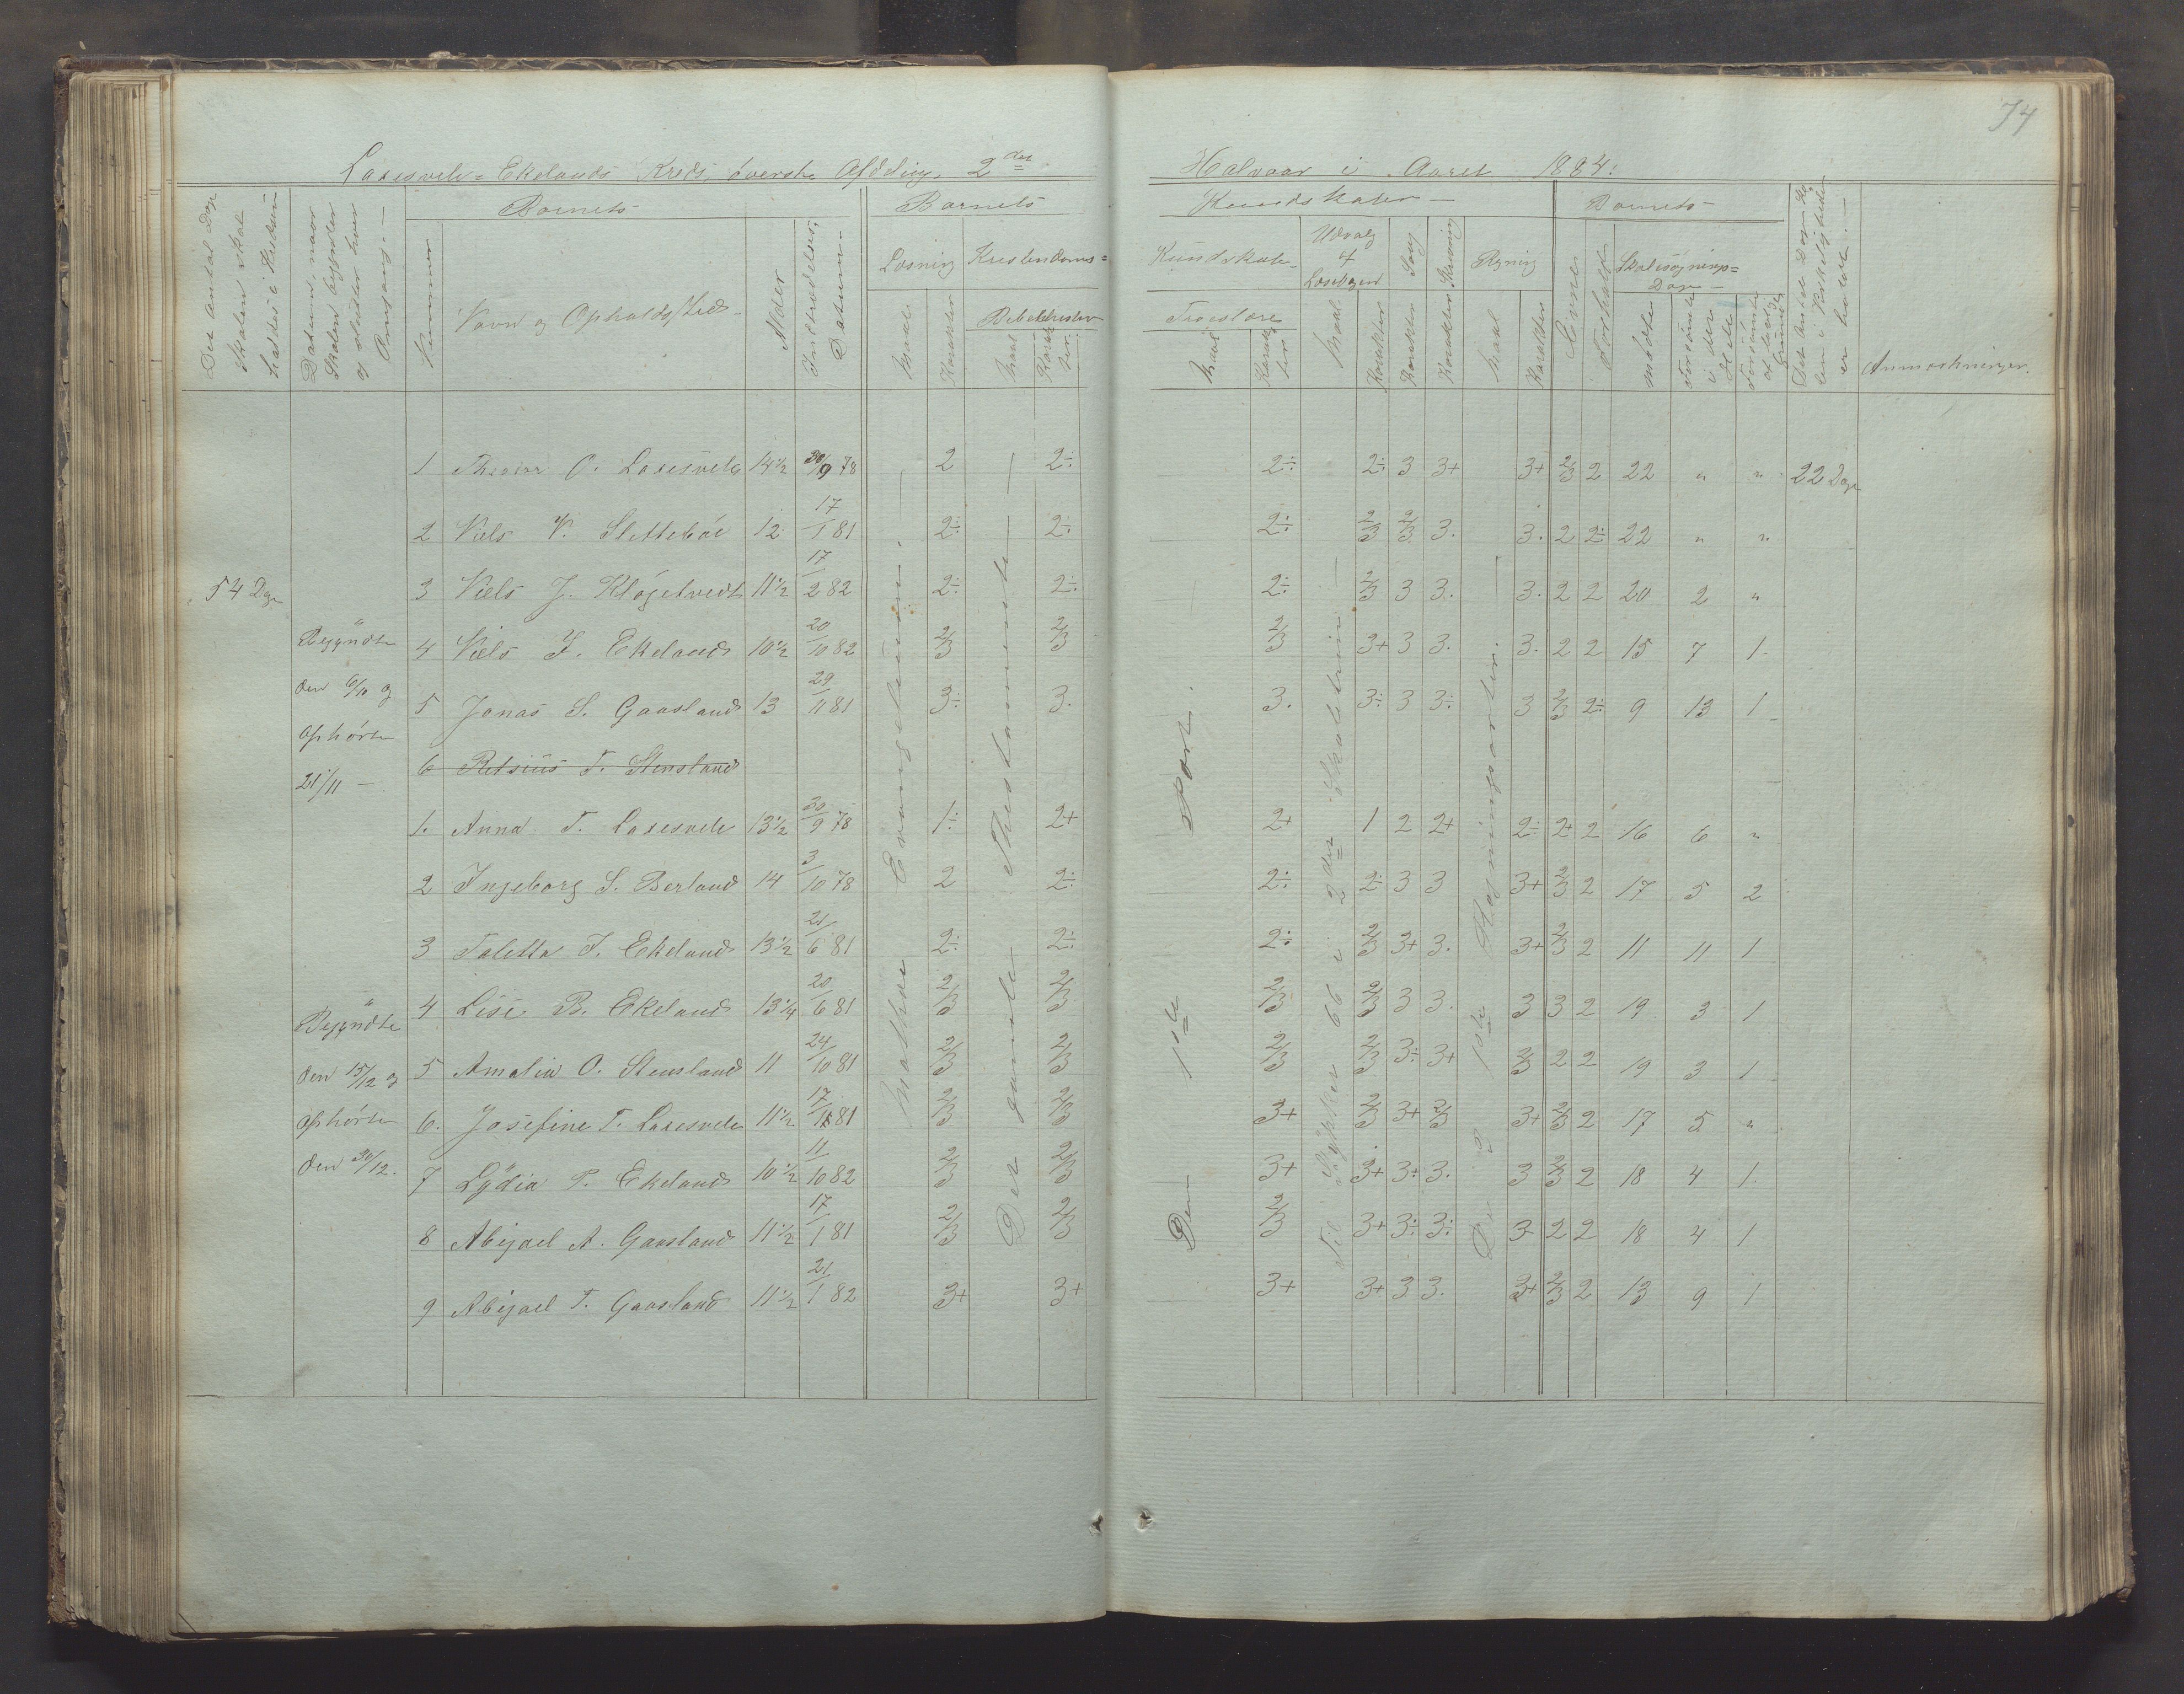 74
Laxesvele-Ekelands Kreds, øverste Afdeling, 2det Halvaar i Aaret 1884.
Det Antal Dage Skolen skal holdes i Kredsen
Datum, naar Skolen begynder og slutter hver Omgang.
Nummer
Barnets
Navn og Opholdssted
Alder
Indtrædelses-Datum
Barnets Kundskaber
Læsning
Maal
Karakter
Kristendoms-Kundskab
Bibelhistorie
Maal
Karakter
Troeslære
Maal
Karakter
Udvalg af Læsebogen
Maal
Karakter
Sang
Karakter
Skrivning
Karakter
Regning
Maal
Karakter
Evner
Forhold
Barnets
Skolesøgnings-Dage
mødte
forsømte i det Hele
forsømte af lovlig Grund
Det Antal Dage Skolen i Virkeligheden er holdt.
Anmærkninger.
54 Dage
Begyndte
den 6/10 og
ophørte
21/11
Begyndte
den 15/12 og
ophørte
den 30/12.
Mathæi Evangelium
Det gamle Thestamente
Den 1ste Part.
Til Stykket 66 i 2det Skoletrin
De 2 1ste Regningsarter.
1 O. Laxesvele 14½ 30/9 78 2 2÷ 2÷ 2÷ 3 3+ 3+ 2/3 2 22 " " 22 Dage
2 Niels N. Slettebøe 12 17/1 81 2÷ 2÷ 2÷ 2/3 2/3 3. 3. 2 2÷ 22 " "
3 Niels J. Kløgetvedt 11½ 17/2 82 2÷ 2÷ 2÷ 2/3 3 3. 3. 2 2 20 2 "
4 Niels T. Ekeland 10½ 20/10 82 2/3 2/3 2/3 3+ 3 3. 3. 2 2 15 7 1.
5 Jonas S. Gaasland 13 29/11 81 3÷ 3. 3. 3÷ 3 3÷ 3 2/3 2÷ 9 13 1
6 Retsius T. Stensland
1. Anna T. Laxesvele 13½ 30/9 78 1÷ 2+ 2+ 1 2 2+ 2÷ 2+ 2 16 6 "
2 Ingeborg S. Berland 14 3/10 78 2 2÷ 2÷ 2÷ 3 3 3+ 2/3 2 17 5 2
3 Taletta T. Ekeland 13½ 21/6 81 2÷ 2÷ 2÷ 2/3 3+ 3. 3+ 2/3 2 11 11 1
4 Lise B. Ekeland 13¼ 20/6 81 2/3 2/3 2/3 2/3 3 3. 3 3 2 19 3 1
5 Amalia O. Stensland 11 24/10 81 2/3 2/3 2/3 2/3 3÷ 3+ 2/3 2 2 19 3 1
6. Josefine T. Laxesvele 11½ 17/1 81 2/3 2/3 3+ 2/3 3+ 2/3 3+ 2/3 2 17 5 "
7 Lydia T. Ekeland 10½ 11/10 82 2/3 2/3 3+ 3+ 3+ 3. 3 2/3 2 18 4 1.
8 Abigael A. Gaasland 11½ 17/1 81 2/3 2/3 2/3 3+ 3÷ 3÷ 3 2 2 18 4 1
9 Abigael T. Gaasland 11½ 21/1 82 3+ 3+ 3+ 3+ 3 3. 3+ 2/3 2 13 9 1